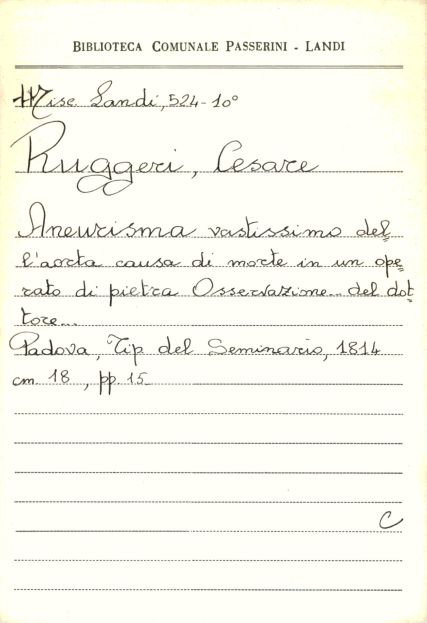 BIBLIOTECA COMUNALE PASSERINI - LANDI
Misc. Landi, 524-10°
Ruggeri, Cesare
Aneurisma vastissimo del=
l'aorta causa di morte in un ope=
rato di pietra Osservazione... del dot=
tore...
Padova, Tip del Seminario, 1814
cm. 18, pp. 15
C